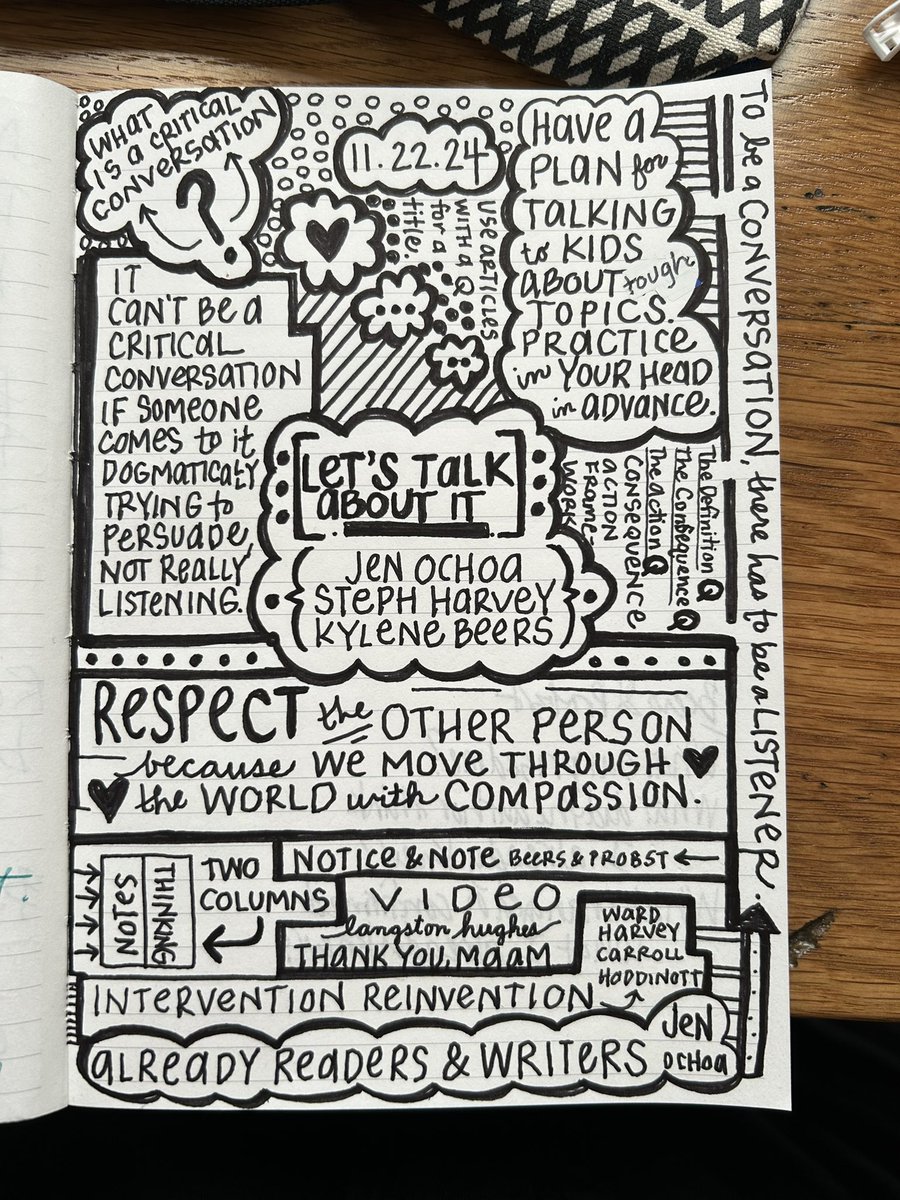 WHAT
IS A CRITICAL
CONVERSATION
?
11.22.24
USE ARTICLES
WITH A Q
for a
title.
HAVE A
PLAN for
TALKING
to KIDS
ABOUT tough
TOPICS.
PRACTICE
in YOUR HEAD
in ADVANCE.
To be a CONVERSATION, there has to be a LISTENER.
IT
CAN'T BE A
CRITICAL
CONVERSATION
IF SOMEONE
COMES to it
DOGMATICALLY
TRYING to
PERSUADE,
NOT REALLY
LISTENING.
[LET'S TALK
ABOUT IT]
JEN OCHOA
STEPH HARVEY
KYLENE BEERS
The Definition Q
The Consequence Q
The action Q
CONSEQUENCE
ACTION
FRAME-
WORK
RESPECT the OTHER PERSON
because WE MOVE THROUGH
the WORLD with COMPASSION.
THINKING
NOTES
TWO
COLUMNS
NOTICE & NOTE BEERS & PROBST
VIDEO
langston hughes
THANK YOU, MAAM
WARD
HARVEY
CARROLL
HODDINOTT
INTERVENTION REINVENTION
ALREADY READERS & WRITERS
JEN
OCHOA